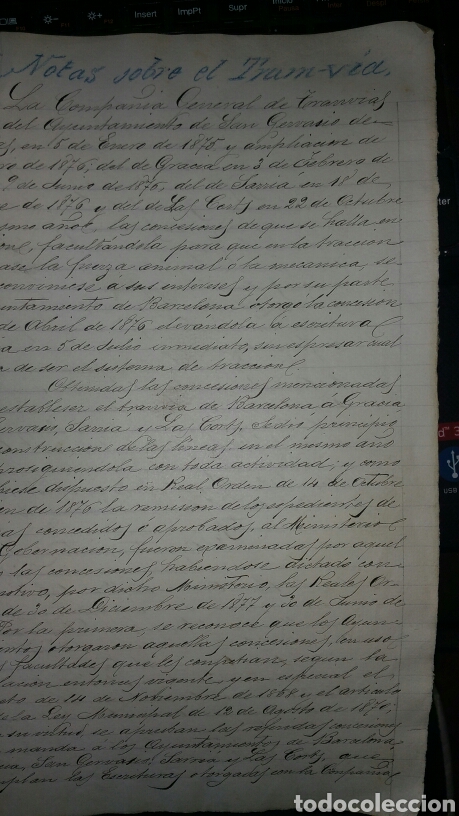 Insert
ImpPt
Supr
Inicio
Pausa
Notas sobre el Tram-vía.
La Compañía General de Tranvías
del Ayuntamiento de San Gervasio
en 5 de Enero de 1875 y ampliacion de
ro de 1876, del de Gracia en 3 de Febrero de
2 de Junio de 1876, del de Sarria en 18 de
e de 1876 y del de Las Corts en 22 de Octubre
smo año, las concesiones de que se halla en
ion, facultandola para que en la traccion
ase la fuerza animal ó la mecanica, se
conviniese a sus intereses y por su parte
untamiento de Barcelona otorgó la concesion
de Abril de 1876 elevandola á escritura
a en 5 de Julio inmediato, sin expresar cual
a de ser el sistema de traccion.
Obtenidas las concesiones mencionadas
establecer el tranvia de Barcelona á Gracia
ervasio, Sarria y Las Corts, se dio principio
construccion de las lineas en el mismo año
prosiguiendola con toda actividad; y como
biese dispuesto en Real Orden de 14 de Octubre
en de 1876 la remision de los expedientes de
as concedidos ó aprobados, al Ministerio
obernacion, fueron examinados por aquel
las concesiones habiendose dictado con
motivo, por dicho Ministerio, las Reales Or
de 30 de Diciembre de 1877 y 30 de Junio de
Por la primera, se reconoce que los Ayun
entos otorgaron aquellas concesiones, en uso
as facultades que les competian, segun la
lacion entonces vigente y en especial el
to de 14 de Noviembre de 1868 y el articulo
de la Ley Municipal de 12 de Agosto de 1870,
su virtud se aprueban las referidas concesiones
manda á los Ayuntamientos de Barcelona
cia, San Gervasio, Sarria y Las Corts que
plan las Escrituras otorgadas con la Compañia
todocoleccion.net